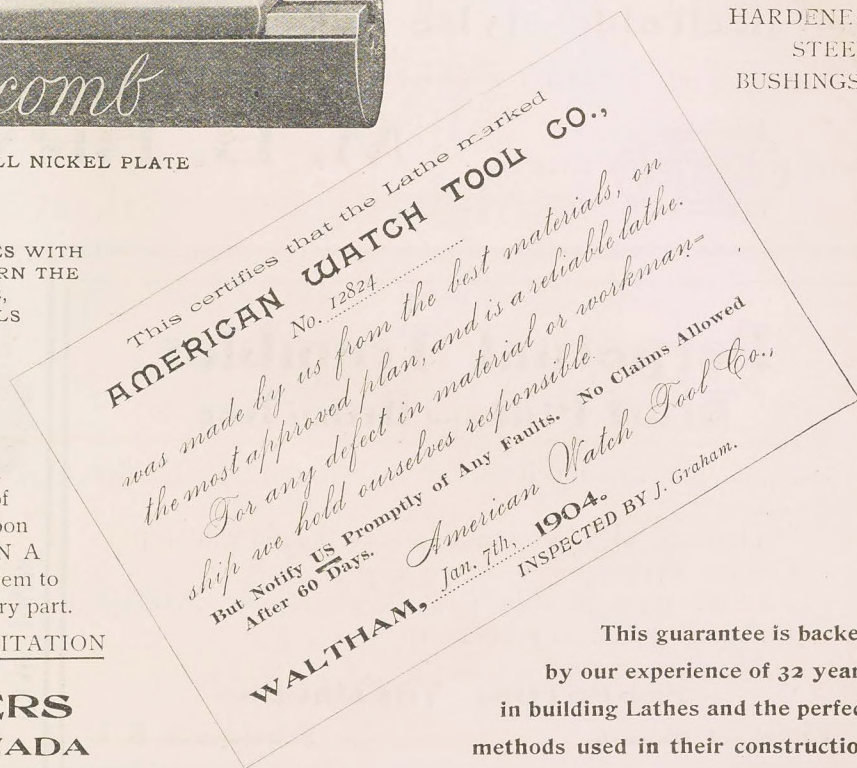 comb
LL NICKEL PLATE
HARDENE
STEE
BUSHINGS
ES WITH
RN THE
LS
This certifies that the Lathe marked
AMERICAN WATCH TOOL CO.,
No. 12824
was made by us from the best materials, on
the most approved plan, and is a reliable lathe.
For any defect in material or workman-
ship we hold ourselves responsible.
But Notify US Promptly of Any Faults. No Claims Allowed
After 60 Days.
American Watch Tool Co.,
WALTHAM, Jan. 7th, 1904.
INSPECTED BY J. Graham.
of
pon
N A
em to
ry part.
ITATION
ERS
ADA
This guarantee is backe
by our experience of 32 year
in building Lathes and the perfec
methods used in their constructio